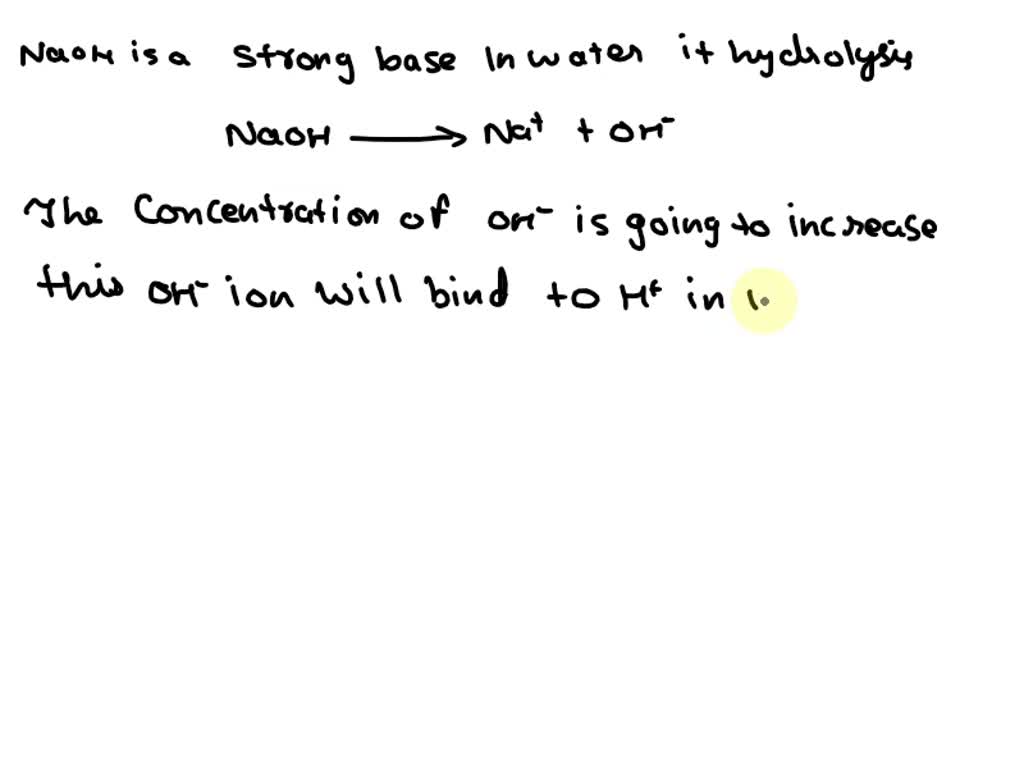 NaOH is a strong base In water it hydrolysis
NaOH → Na⁺ + OH⁻
The Concentration of OH⁻ is going to increase
this OH⁻ ion will bind to H⁺ in